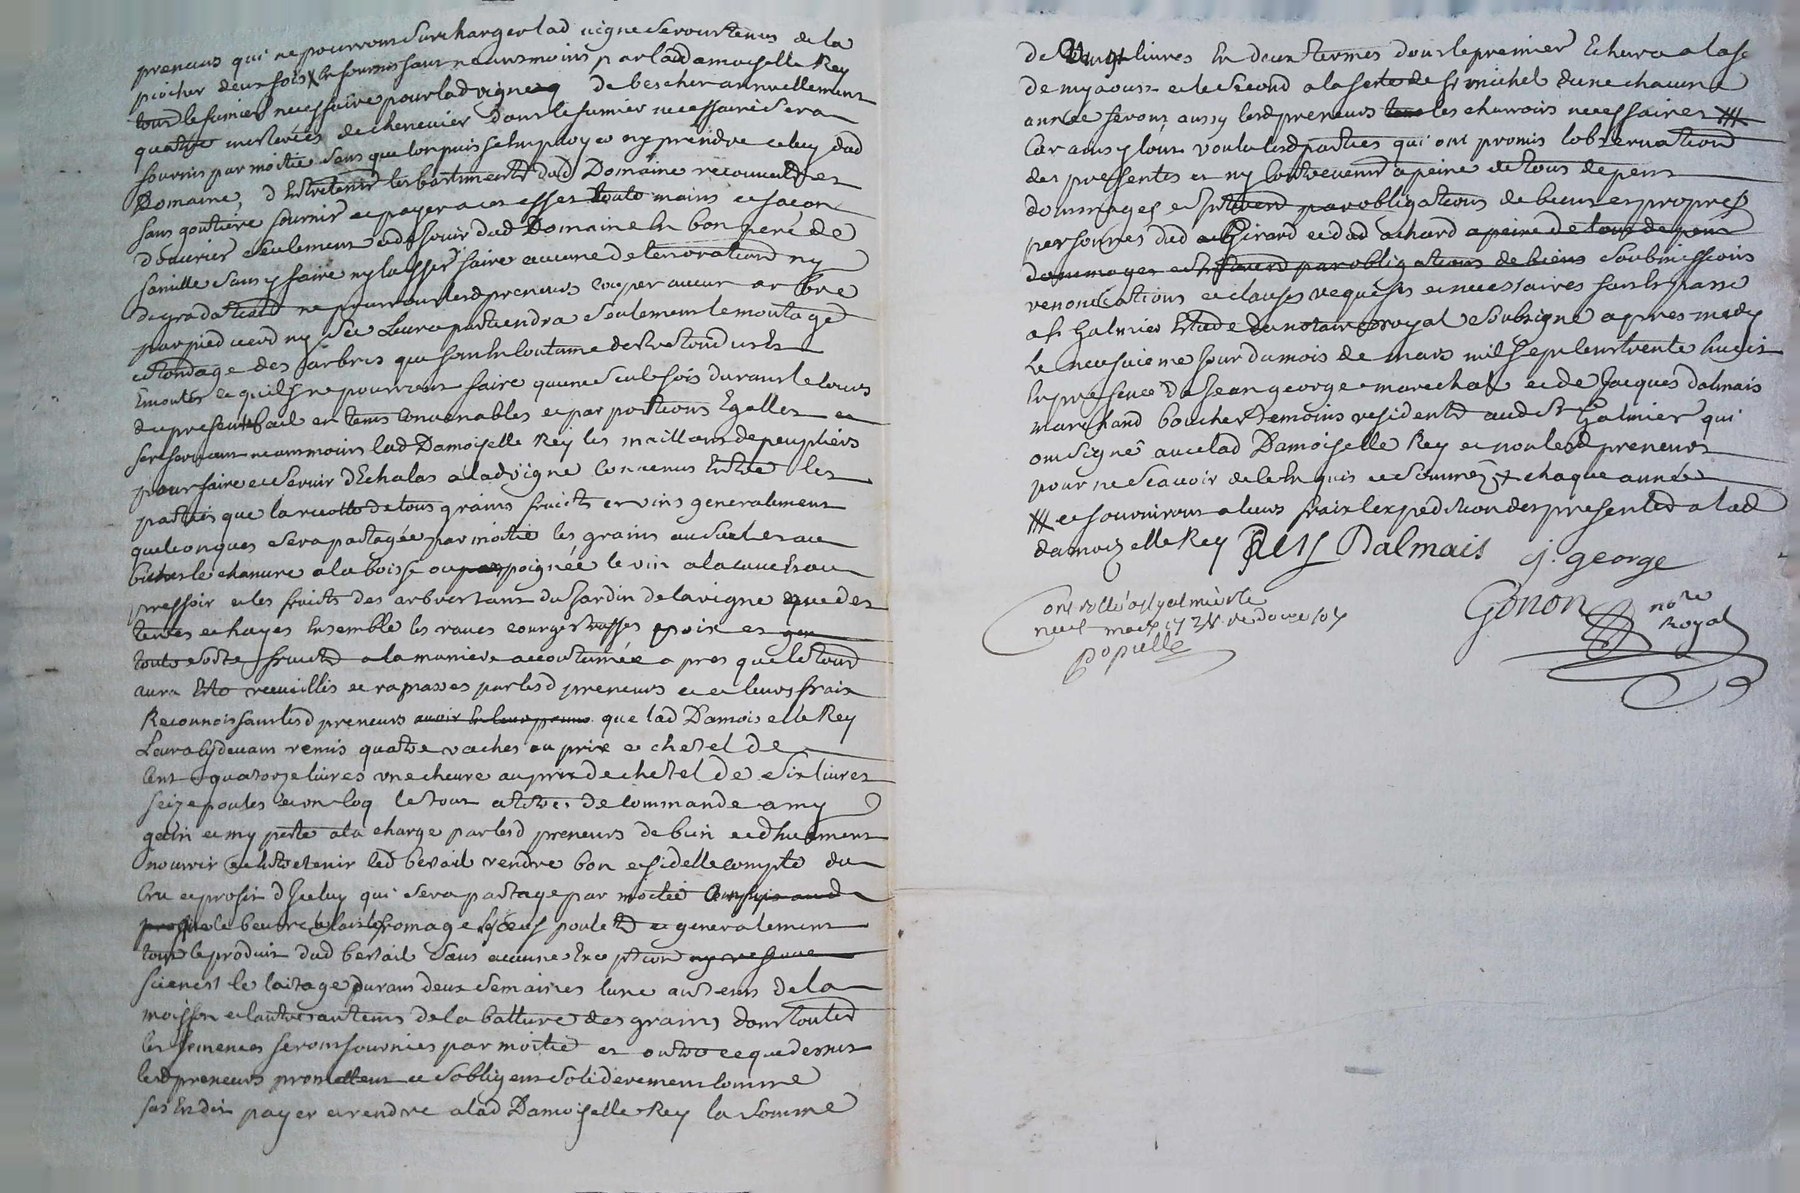 preneurs qui ne pourront surcharger lad vigne seront tenus de la
piocher deux fois X le fournissant neantmoins par lad damoiselle Rey
tout le fumier necessaire pour lad vigne de bescher annuellement
quatre de chenevier dont le fumier necessaire sera
fourni par moitié sans que lon puisse employer ny prendre celuy dud
Domaine, d Entretenir les bastiments dud Domaine recouverts et
sans goutiere fournir et payer a ces effet touts mains et facon
douvrier seulement et de jouir dud Domaine En bon pere de
famille sans y faire ny laisser faire aucune deterioration ny
degradation ne pourront lesd preneurs couper aucun arbre
par pied verd ny sec Leur apartiendra seulement le montage
et tondage des arbres qui sont En Coutume destre tondus et
Emontés ce quils ne pourront faire quune seule fois durant le cours
du present bail en tems convenables et par portions Egalles et
reservant neantmoins lad Damoiselle Rey les maillans de peupliers
pour faire et servir dEchalas a lad vigne Convenus Entre les
parties que la recolte de tous grains fruits et vins generalement
quelconques sera partagée par moitié les grains au
le chanvre a la boisse ou poignée le vin a la cuve Et au
pressoir et les fruits des arbres tant du Jardin de la vigne que des
terres et hayes Ensemble les raves courges pois et
toute sorte fruits a la maniere accoutumée apres que le tout
aura Esté recueillis et ramasses par lesd preneurs et a leurs frais
Reconnoissant lesd preneurs que lad Damoiselle Rey
Leur a cydevant remis quatre vaches au prix et chetel de
Cent quatorze livres une chevre au prix de chetel de six livres
seize poules et un coq le tout a titre de commande a my
gain et my perte a la charge par lesd preneurs de bien et duement
nourrir et entretenir led betail rendre bon et fidelle compte du
Cru et profit d Iceluy qui sera partage par moitié
le beurre le lait fromage les œufs poulets et generalement
tout le produit dud betail sans aucune Exception
le laitage durant deux semaines lune au tems de la
moisson et lautre au tems de la batture des grains dont toutes
les semences seront fournies par moitié et outre ce que dessus
lesd preneurs promettent et sobligent solidairement comme
sus Est dit payer et rendre a lad Damoiselle Rey la somme
de vingt livres En deux termes dont le premier Echera a la fe
de my aoust et le second a la feste de St michel dune chacune
année feront aussy lesd preneurs les charrois necessaires
Car ainsy lont voulu lesd parties qui ont promis lobservation
des presentes et ny contrevenir a peine de tous depens
dommages et par obligations de biens et propres
personnes dud Girard et dud achard a peine de tous depens
dommages et par obligations de biens soubmissions
renonciations et clauses requises et necessaires fait Et passé
a St Galmier Etude du notaire royal soubsigné apres midy
le neufvieme jour du mois de mars mil sept cent trente huit
En presence de Jean george marechal et de Jacques Dalmais
marchand boucher temoins residents aud St Galmier qui
ont signé avec lad Damoiselle Rey et non lesd preneurs
pour ne scavoir de ce Enquis et sommés X chaque année
et fourniront a leurs frais lexpedition des presentes a lad
damoiselle Rey Rey Dalmais j. george
controllé a St galmier le
neuf mars 1738 re douze sols
Gonon nore
Royal